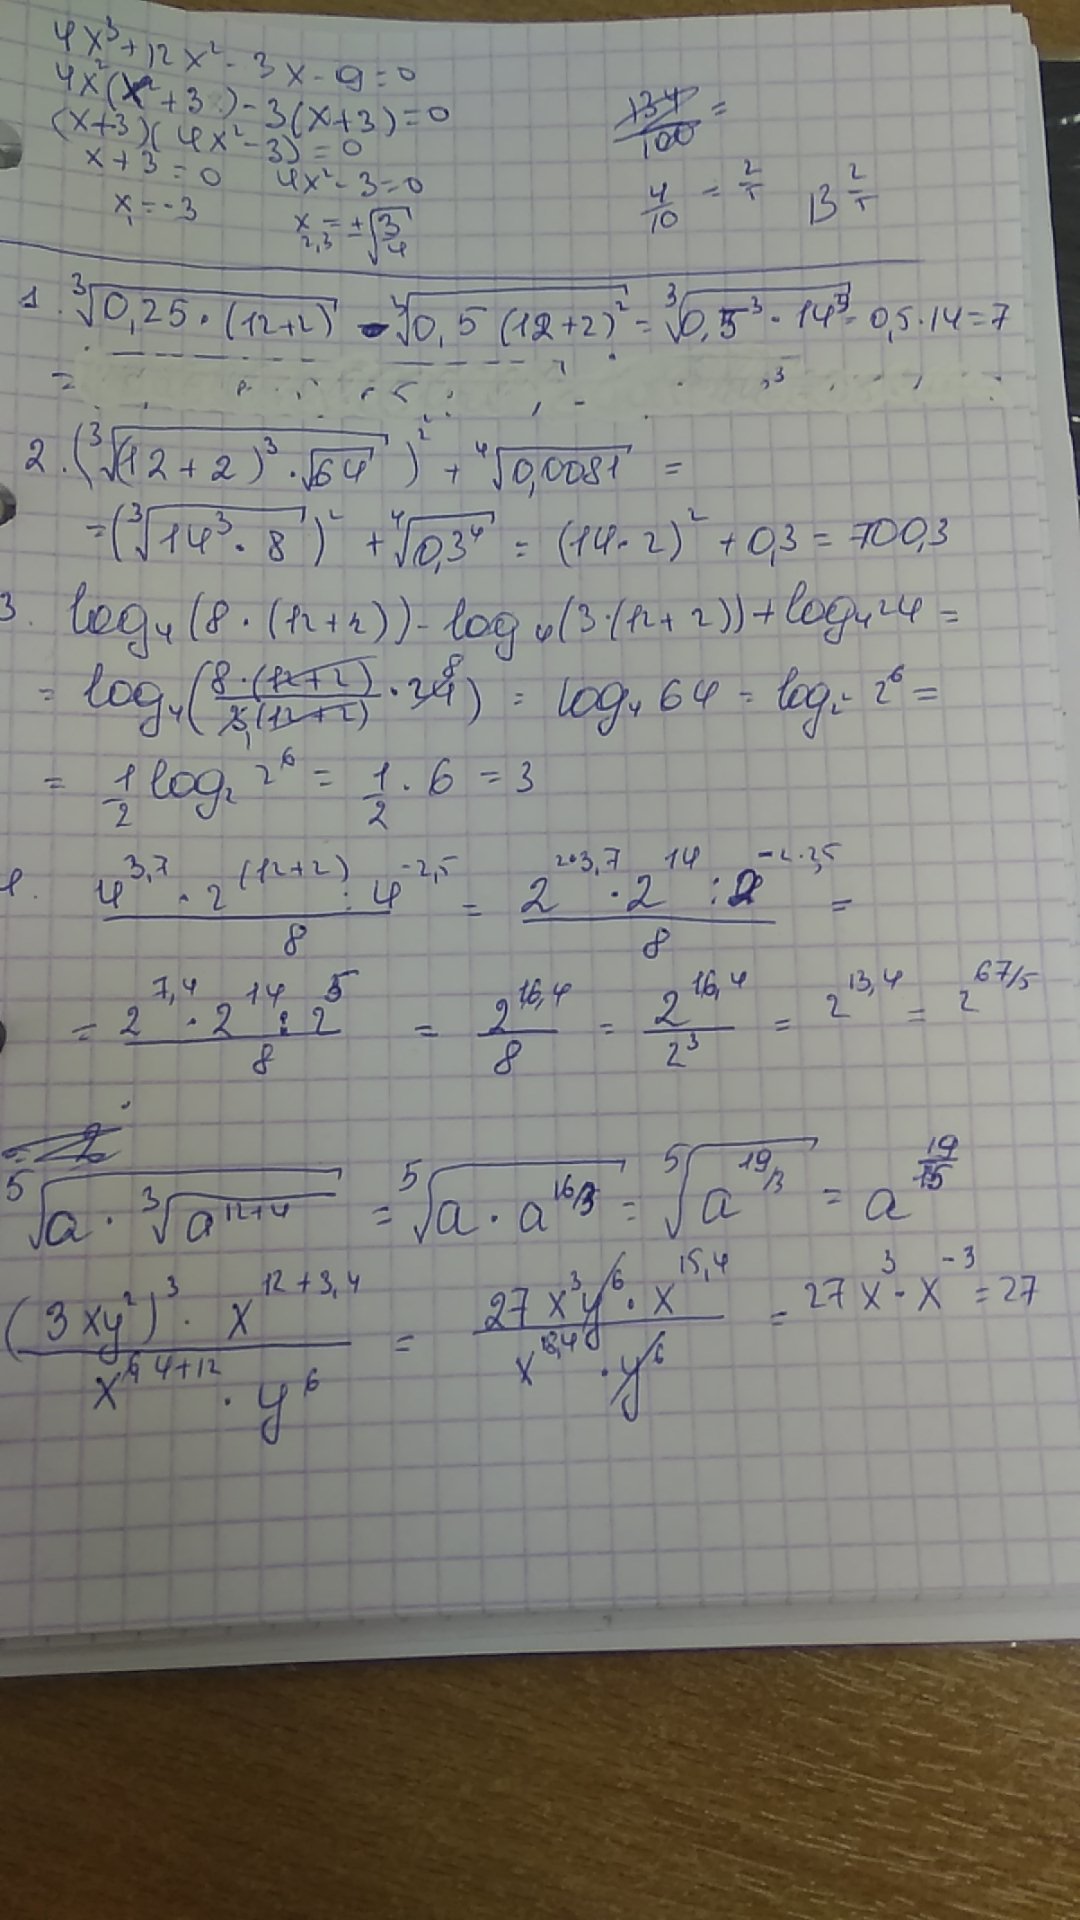 4x³ + 12x² - 3x - 9 = 0
4x²(x + 3) - 3(x+3) = 0
(x+3)(4x² - 3) = 0
x + 3 = 0 4x² - 3 = 0
x₁ = -3 x₂,₃ = ±√(3/4)
134/100 =
4/10 = 2/5 13 2/5
1. ∛(0,25 · (12+2)) · ∛(0,5 (12+2)²) = ∛(0,5³ · 14³) = 0,5 · 14 = 7
=
2. (∛((12+2)³ · √64))² + ∜0,0081 =
= (∛(14³ · 8))² + ∜(0,3⁴) = (14 · 2)² + 0,3 = 700,3
3. log₄(8 · (12+2)) - log₄(3 · (12+2)) + log₄ 24 =
= log₄(8 · (12+2) / 3(12+2) · 24 8) = log₄ 64 = log₂² 2⁶ =
= 1/2 log₂ 2⁶ = 1/2 · 6 = 3
4^3,7 · 2^(12+2) : 4^-2,5 / 8 = 2^2·3,7 · 2^14 : 2^-2·2,5 / 8 =
= 2^7,4 · 2^14 : 2^5 / 8 = 2^16,4 / 8 = 2^16,4 / 2³ = 2^13,4 = 2^67/5
⁵√(a · ∛(a^12+4)) = ⁵√(a · a^16/3) = ⁵√(a^19/3) = a^19/15
(3xy²)³ · x^12+3,4 / x^6,4+12 · y⁶ = 27x³y⁶ · x^15,4 / x^18,4 · y⁶ = 27x³ · x^-3 = 27